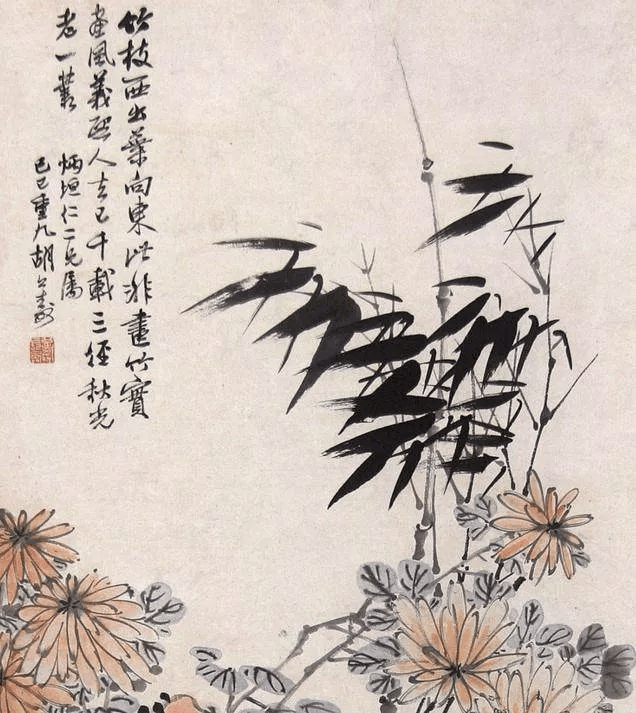 竹枝西出葉向東此非畫竹實
畫風義熙人去已千載三徑秋光
老一叢
炳垣仁二兄屬
己巳重九胡公壽